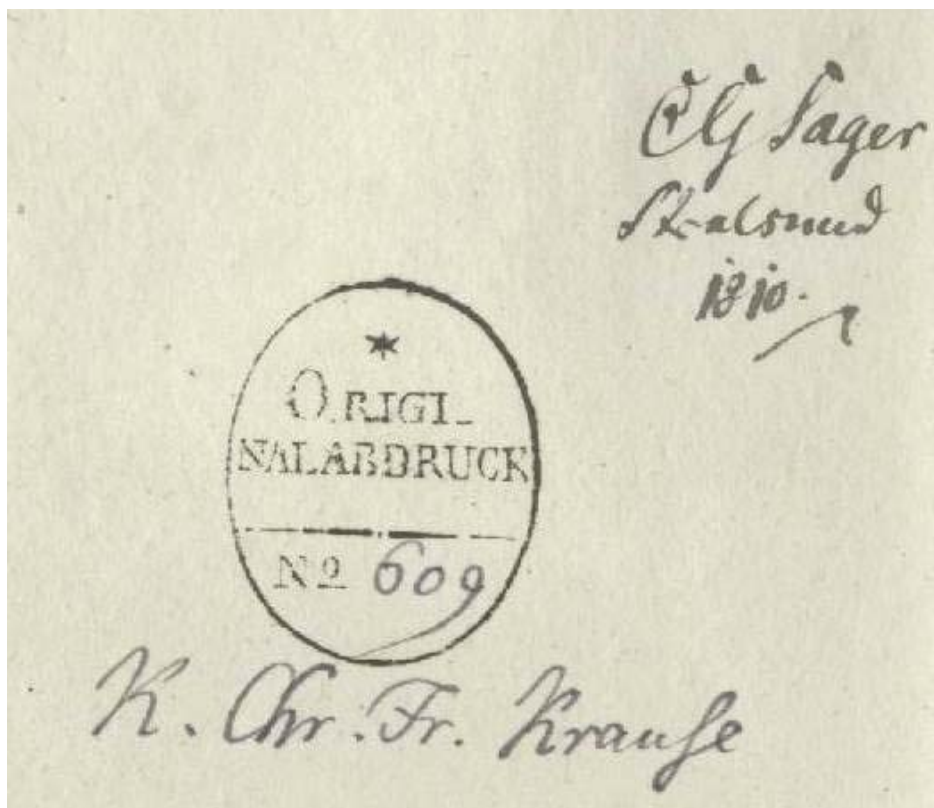 CG Sager
Stralsund
1810.
ORIGI-
NALABDRUCK
No 609
K. Chr. Fr. Krauſe